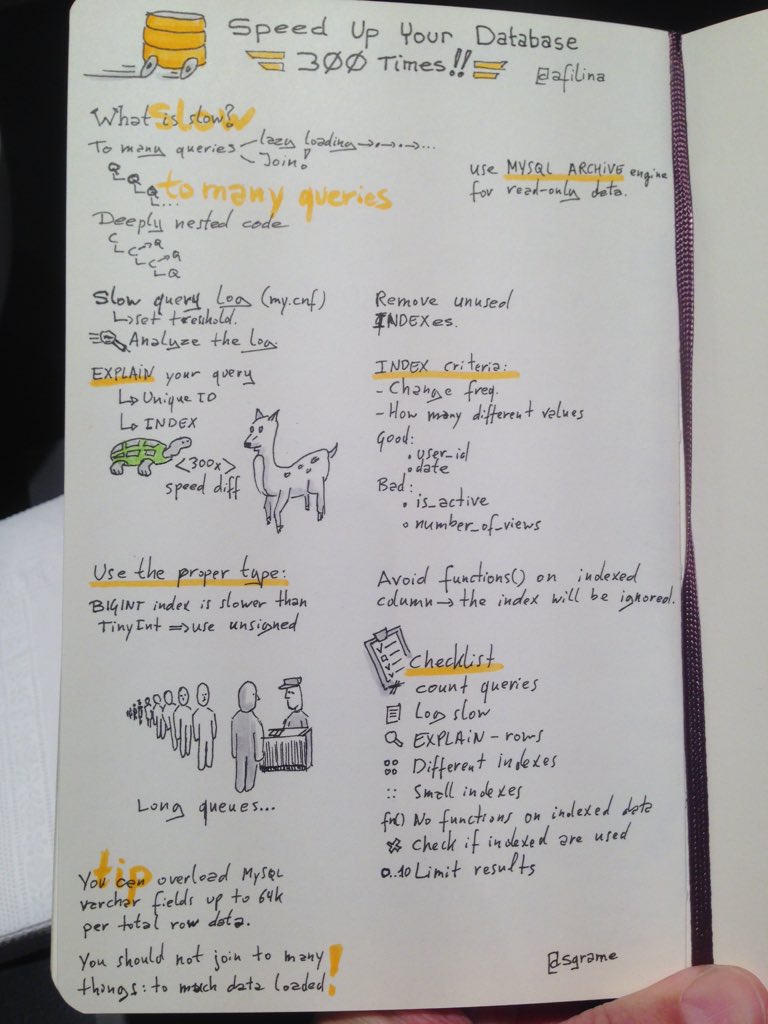 Speed Up Your Database
300 Times!!
@afilina
slow
What is slow?
To many queries
lazy loading → . → . → . ...
Join!
Q
Q
Q
...
to many queries
use MYSQL ARCHIVE engine
for read-only data.
Deeply nested code
C
C → Q
C → Q
Q
Slow query Log (my.cnf)
↳ set treshold.
Analyze the Log
EXPLAIN your query
↳ Unique ID
↳ INDEX
<300x>
speed diff
Remove unused
INDEXes.
INDEX criteria:
- Change freq.
- How many different values
Good:
• user_id
• date
Bad:
• is_active
• number_of_views
Use the proper type:
BIGINT index is slower than
TinyInt ⇒ use unsigned
Avoid functions() on indexed
column → the index will be ignored.
Long queues...
Checklist
# count queries
Log slow
EXPLAIN - rows
Different indexes
:: Small indexes
fn() No functions on indexed data
Check if indexed are used
0..10 Limit results
tip
You can overload MySQL
varchar fields up to 64k
per total row data.
You should not join to many
things: to much data loaded!
@sgrame